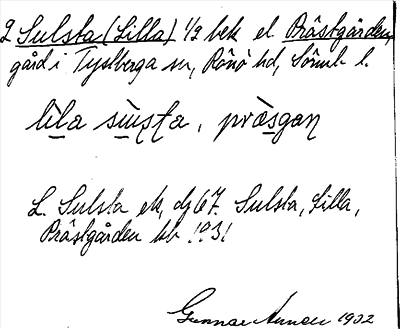 2 Sulsta (Lilla) 1/2 bek el. Prästgården,
gård i Tystberga sn, Rönö hd, Sörml. l.
lila sùsta, præ̀sgan
L. Sulsta ek, dj 67. Sulsta, Lilla,
Prästgården kb 1931
Gunnar 1932